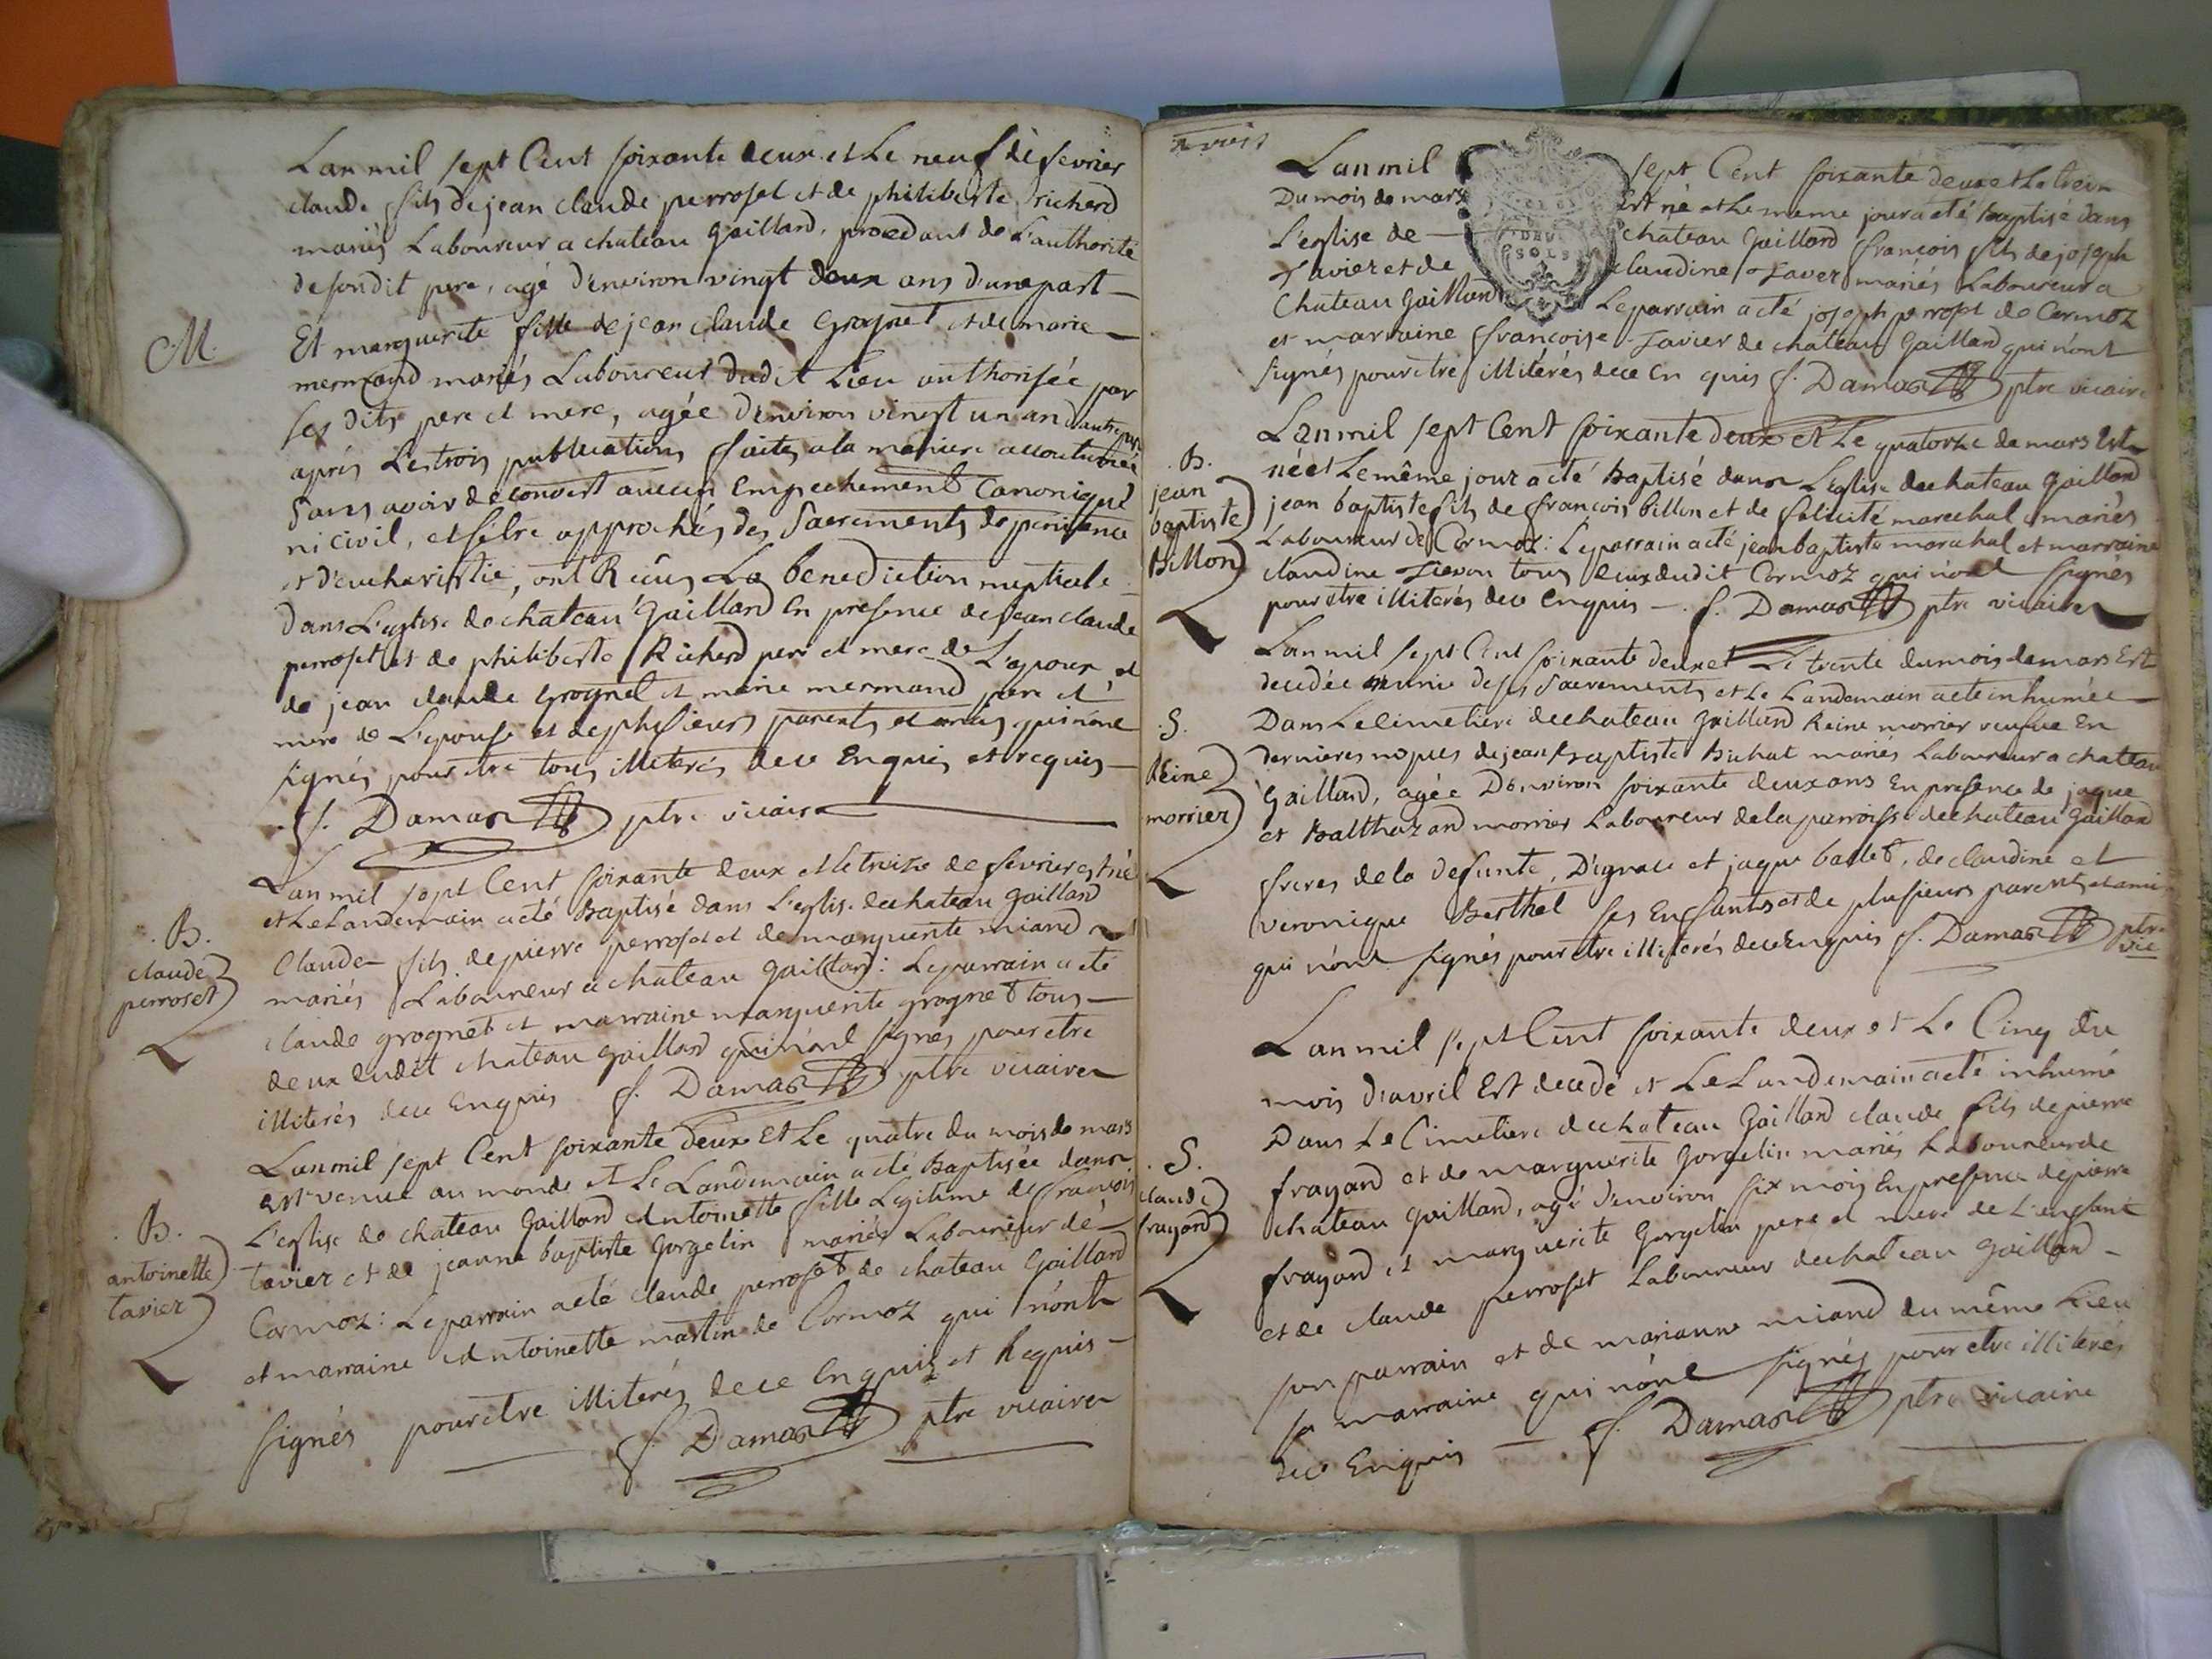 Lan mil sept Cent soixante deux et Le neuf de fevrier
claude fils de jean claude perroset et de philiberte richerd
mariés Laboureur a chateau gaillard, procedant de L'authorité
de son dit pere, agé d'environ vingt deux ans d'une part
M.
Et marguerite fille de jean claude grognet et de marie
mermand mariés Laboureur dudit Lieu authorisée par
ses dits pere et mere, agée d'environ vingt un an d'autre part
après Les trois publications faites a la maniere accoutumée
Sans avoir decouvert aucun Empechement Canonique
ni civil, et s'être approchés des Sacrements de penitence
et d'eucharistie, ont Reçus La benediction nuptiale
dans L'eglise de chateau gaillard En presence de jean claude
perroset et de philiberte Richerd pere et mere de L'epoux et
de jean claude grognet et marie mermand pere et
mere de L'epouse et de plusieurs parents et amis qui n'ont
signés pour etre tous illiterés de ce Enquis et requis
f. Damas ptre vicaire
Lan mil sept Cent soixante deux et le treize de fevrier est né
et Le Landemain a eté Baptisé dans L'eglise de chateau gaillard
.B.
claude
perroset
Claude fils de pierre perroset et de marguerite miand
mariés Laboureur a chateau gaillard: Le parrain a eté
claude grognet et marraine marguerite grognet tous
deux dudit chateau gaillard qui n'ont signés pour etre
illiterés de ce Enquis f. Damas ptre vicaire
Lan mil sept Cent soixante deux Et Le quatre du mois de mars
est venue au monde et Le Landemain a eté Baptisée dans
.B.
antoinette
tavier
L'eglise de chateau gaillard Antoinette fille Legitime de francois
tavier et de jeanne baptiste gorgelin mariés Laboureur de
Cormoz: Le parrain a eté claude perroset de chateau gaillard
et marraine Antoinette martin de Cormoz qui n'ont
signés pour etre illiterés de ce Enquis et Requis
f. Damas ptre vicaire
Lan mil sept Cent soixante deux et Le
Du mois de mars Est né et Le meme jour a eté Baptisé dans
L'eglise de chateau gaillard françois fils de joseph
Tavier et de claudine mariés Laboureur a
Chateau gaillard Le parrain a eté joseph perroset de Cormoz
et marraine françoise Tavier de chateau gaillard qui n'ont
signés pour etre illiterés de ce En quis f. Damas ptre vicaire
Lan mil sept Cent soixante deux et Le quatorze de mars Est
.B.
jean
baptiste
Billon
né et Le même jour a eté Baptisé dans L'eglise de chateau gaillard
jean baptiste fils de françois billon et de felicité marechal mariés
Laboureur de Cormoz: Le parrain a eté jean baptiste marechal et marraine
claudine tous deux dudit Cormoz qui n'ont signés
pour etre illiterés de ce Enquis f. Damas ptre vicaire
Lan mil sept Cent soixante deux et Le trente du mois de mars Est
decedée munie de ses Sacrements et Le Landemain a eté inhumée
.S.
Reine
morrier
Dans Le cimetiere de chateau gaillard Reine morrier veufve En
dernieres nopces de jean Baptiste Bichat mariés Laboureur a chateau
gaillard, agée D'environ soixante deux ans En presence de jaque
et Balthazard morrier Laboureur de la parroisse de chateau gaillard
freres de la defunte, D'ignace et jaque de claudine et
veronique Berthet ses Enfants et de plusieurs parents et ami
qui n'ont signés pour etre illiterés de ce Enquis f. Damas ptre
vic
Lan mil sept Cent soixante deux et Le Cinq du
mois d'avril Est decedé et Le Landemain a eté inhumé
Dans Le Cimetiere de chateau gaillard claude fils de pierre
.S.
claude
frayard
frayard et de marguerite gorgelin mariés Laboureur de
chateau gaillard, agé d'environ six mois En presence de pierre
frayard et marguerite gorgelin pere et mere de L'enfant
et de claude perroset Laboureur de chateau gaillard
son parrain et de marianne miand du même Lieu
sa marraine qui n'ont signés pour etre illiterés
de ce Enquis f. Damas ptre vicaire